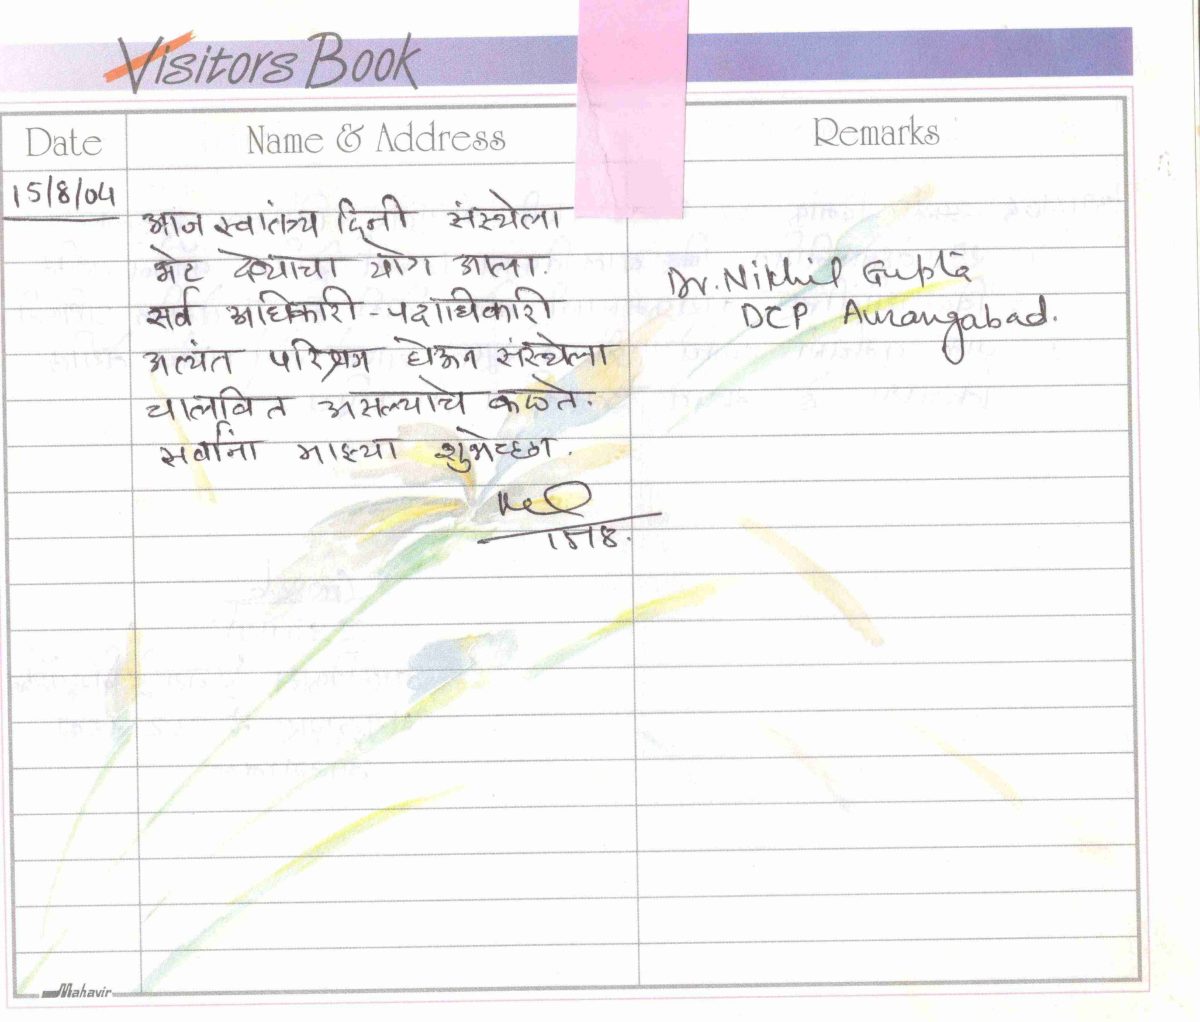 Visitors Book
Date Name & Address Remarks
15/8/04
आज स्वातंत्र्य दिनी संस्थेला
भेट देण्याचा योग आला.
सर्व अधिकारी - पदाधिकारी
अत्यंत परिश्रम घेऊन संस्थेला
चालवित असल्याचे कळते.
सर्वांना माझ्या शुभेच्छा.
15/8.
Dr. Nikhil Gupta
DCP Aurangabad.
Mahavir